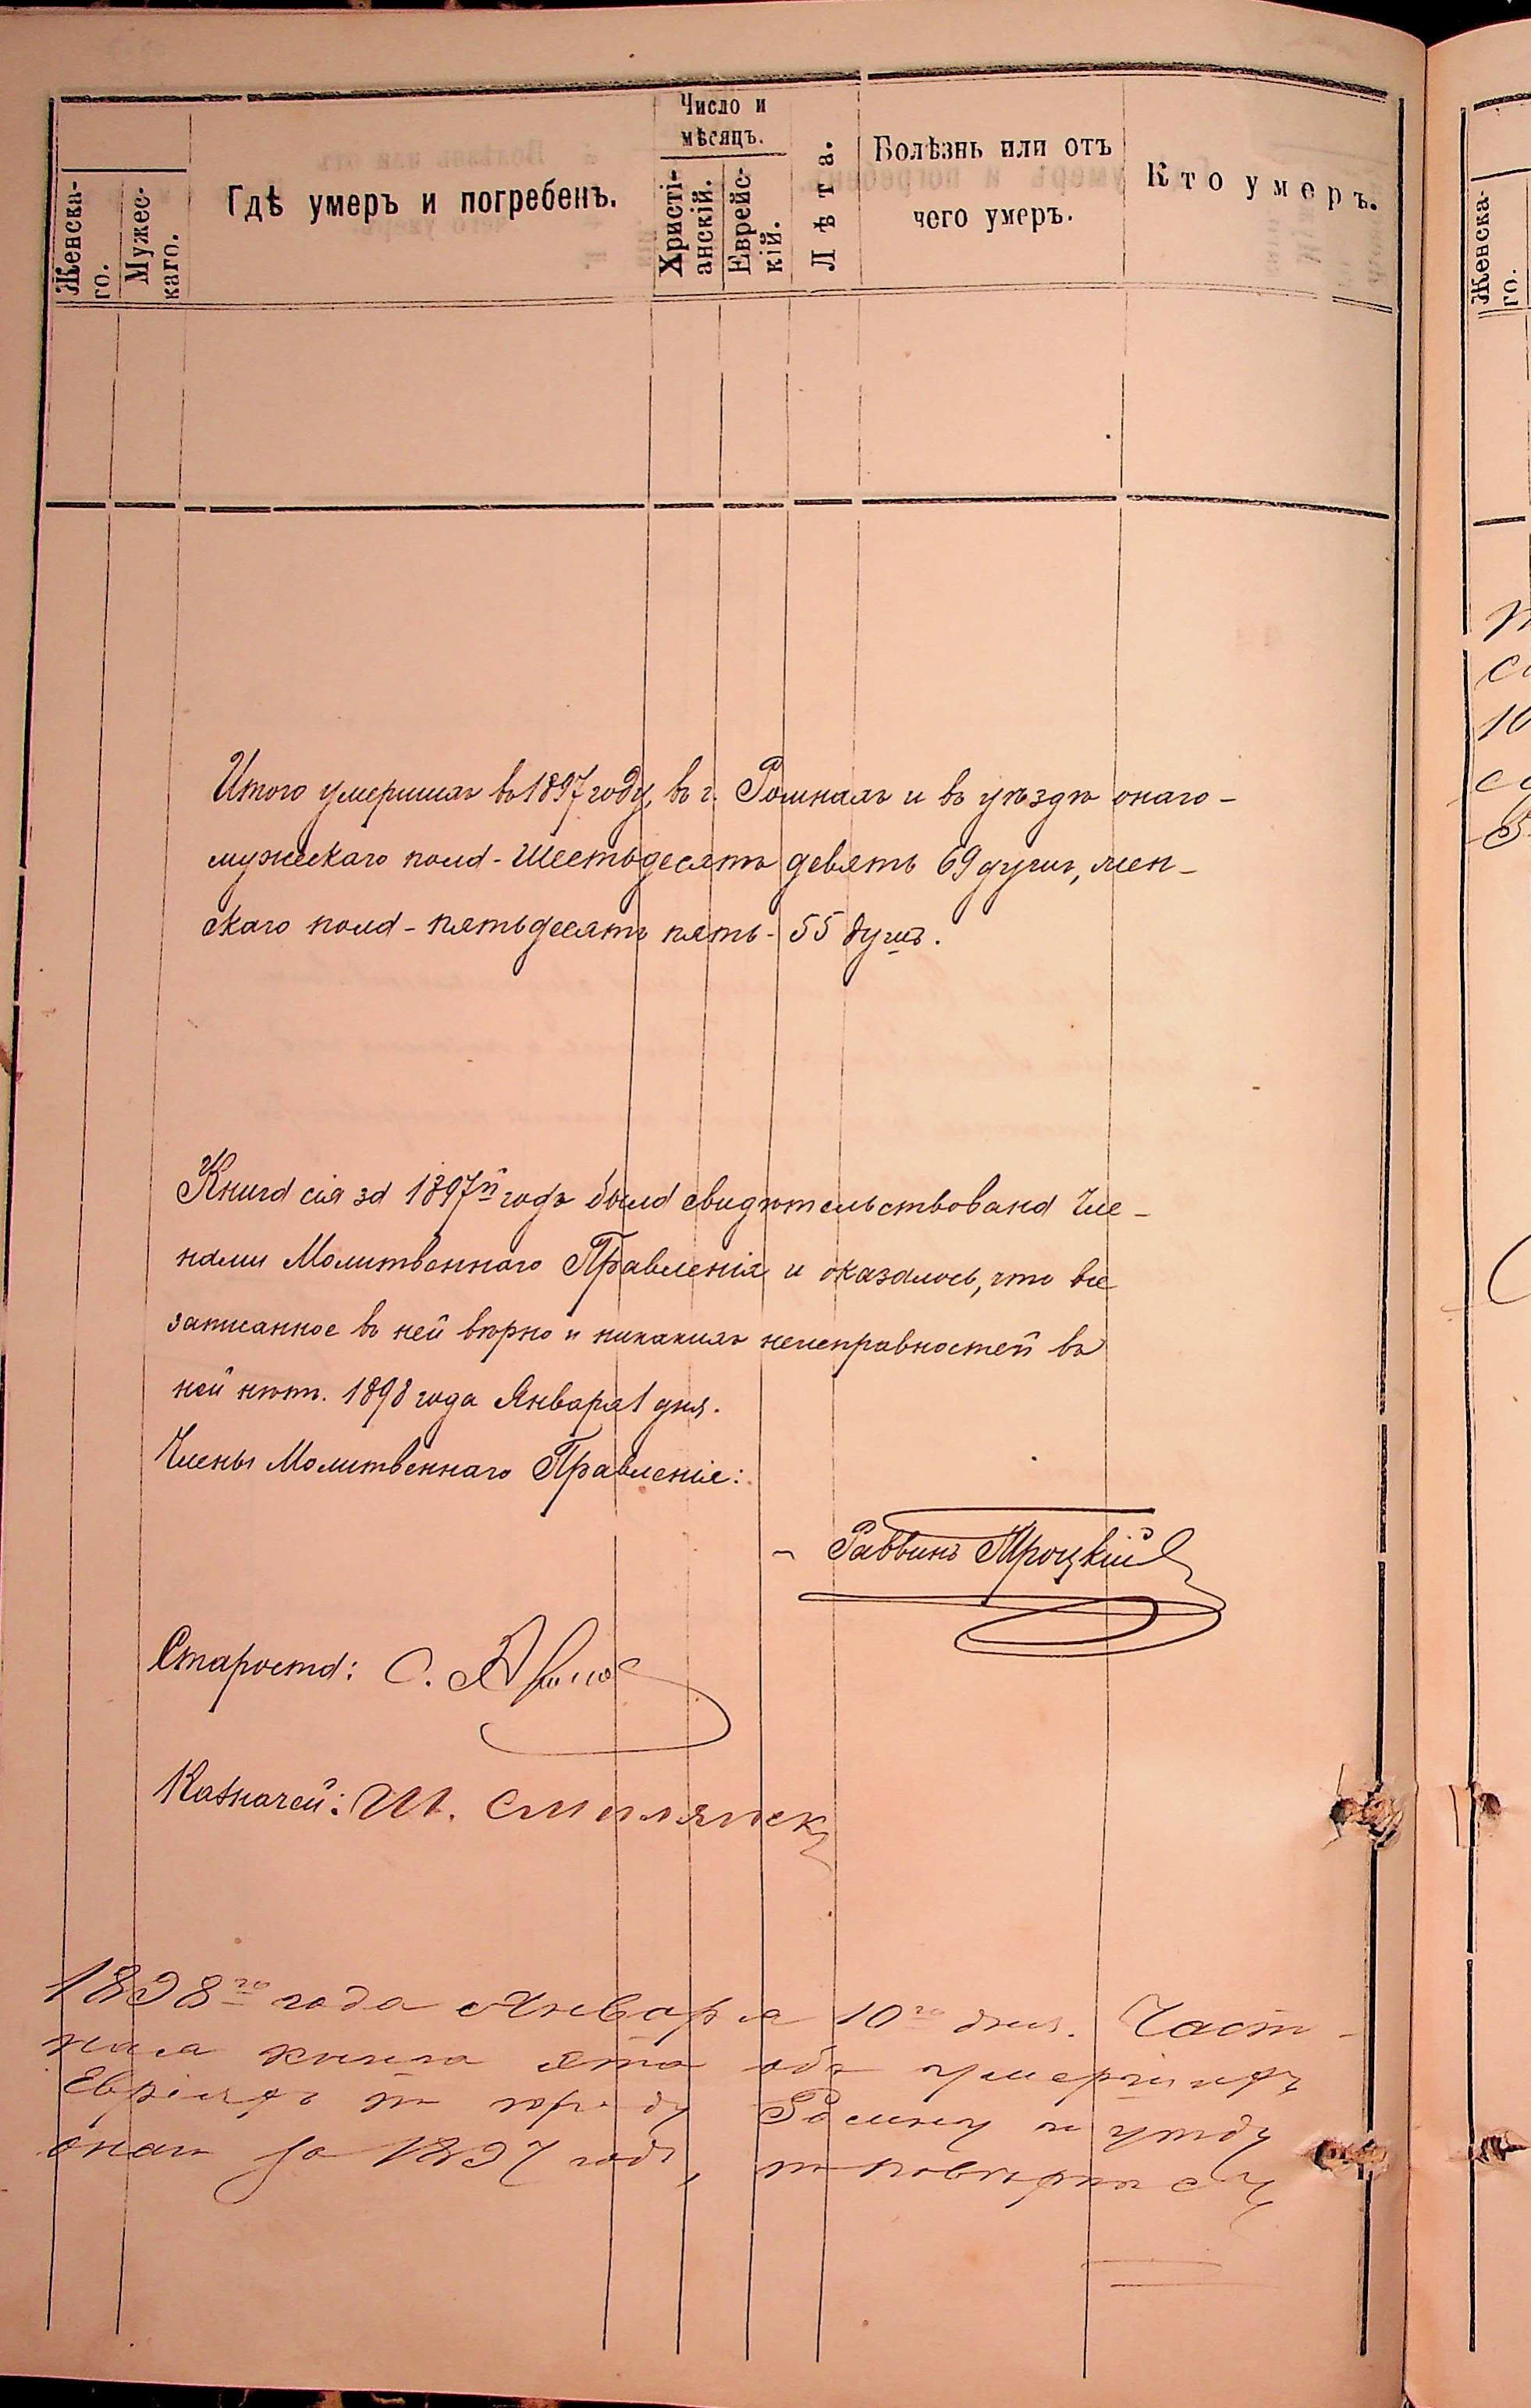 Женска-
го.
Мужес-
каго.
Гдѣ умеръ и погребенъ.
Число и
мѣсяцъ.
Христі-
анскій.
Еврейс-
кій.
Лѣта.
Болѣзнь или отъ
чего умеръ.
Кто умеръ.
Итого умершихъ въ 1897 году, въ г. Ромнахъ и въ уѣздѣ онаго –
мужескаго пола - Шестьдесятъ девять 69 душъ, жен-
скаго пола - пятьдесятъ пять - 55 душъ.
Книга сія за 1897й годъ была свидѣтельствована Чле-
нами Молитвеннаго Правленія и оказалось, что все
записанное въ ней вѣрно и никакихъ неисправностей въ
ней нѣтъ. 1898 года Января 1 дня.
Члены Молитвеннаго Правленія:
Раввинъ Троцкій
Староста: С.
Казначей: Ш. Смилянск
1898го года Января 10го дня. Част-
ная книга эта объ умершихъ
Евреяхъ по городу Ромну и уѣзду
онаго за 1897 годъ,
Женска-
го.